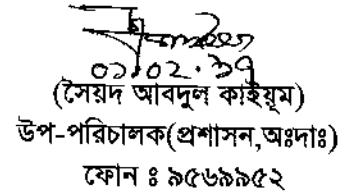 ০১.০২.১৭
(সৈয়দ আবদুল কাইয়ূম)
উপ-পরিচালক(প্রশাসন,অঃদাঃ)
ফোন ঃ ৯৫৬৯৯৫২